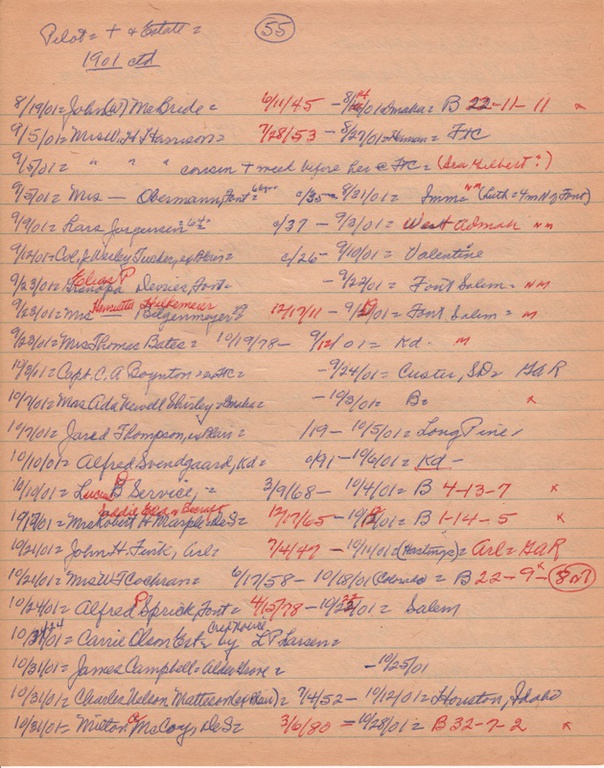 Pilot = + & Estate = 55
1901 ctd
8/19/01 = John W McBride = 6/11/45 - 8/14/01 Omaha = B 22-11-11 x
9/5/01 = Mrs W. H Harrison = 7/28/53 - 8/27/01 = Herman = FtC
9/5/01 = " " " cousin + week before her @ FtC = (Ara Gilbert?)
9/5/01 = Mrs — Obermann, Font = c/35 - 8/31/01 = Imm = NM (Luth = 4m N of Font)
9/9/01 = Lars Jorgensen = c/37 - 9/3/01 = West Admah NM
9/12/01 = Col. J. Wesley Tucker, = c/26 - 9/10/01 = Valentine
9/23/01 = Grandpa Elias P Devries, Font = - 9/22/01 = Font Salem = NM
9/23/01 = Mrs Henrietta Hilkemeier Bilgenmoyer = 12/17/11 - 9/19/01 = Font Salem = M
9/23/01 = Mrs Thomas Bates = 10/19/78 - 9/12/01 = Kd. M
10/3/01 = Capt. C. A Boynton = ex FtC = - 9/24/01 = Custer, SD = GAR
10/7/01 = Mrs Ada Newell Shirley = Omaha = - 10/3/01 = B = x
10/7/01 = Jared Thompson, ex Blair = /19 - 10/5/01 = Long Pine
10/10/01 = Alfred Svendgaard, Kd = c/91 - 10/6/01 = Kd -
10/10/01 = Lucien B Service, = 3/9/68 - 10/4/01 = B 4-13-7 x
= Mrs Robert H Marple DeS = 12/17/65 - = B 1-14-5 x
10/21/01 = John H. Fink, Arl = 7/4/47 - 10/11/01 (Hastings) = Arl = GAR
10/21/01 = Mrs W T Cochran = 6/17/58 - 10/18/01 Colorado = B 22-9-8 or 7 x
10/24/01 = Alfred P Sprick, Font = 4/15/78 - 10/22/01 = Salem
= Carrie Olson Est = by L P Larsen =
10/31/01 = James Campbell = Alder Grove = - 10/25/01
10/31/01 = Charles Nelson Matteson (ex Blair) = 7/4/52 - 10/12/01 = Houston, Idaho
10/31/01 = Milton McCoy, DeS = 3/6/80 = 10/28/01 = B 32-7-2 x